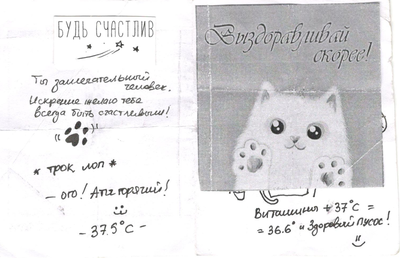 БУДЬ СЧАСТЛИВ
Ты замечательный
человек.
Искренне желаю тебе
всегда быть счастливым!
* трок лоп *
— ого! горячий!
- 37.5°C -
Выздоравливай
скорее!
Витамины + 37°C =
= 36.6° и Здоровый